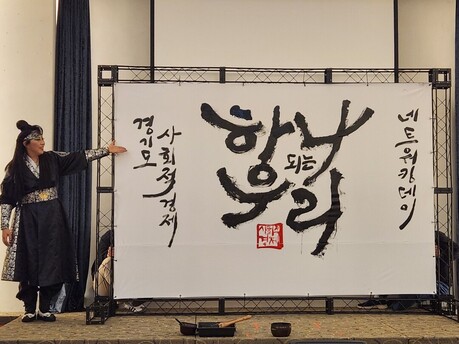 경기도
사회적경제
하나
되는
우리
네트워킹데이